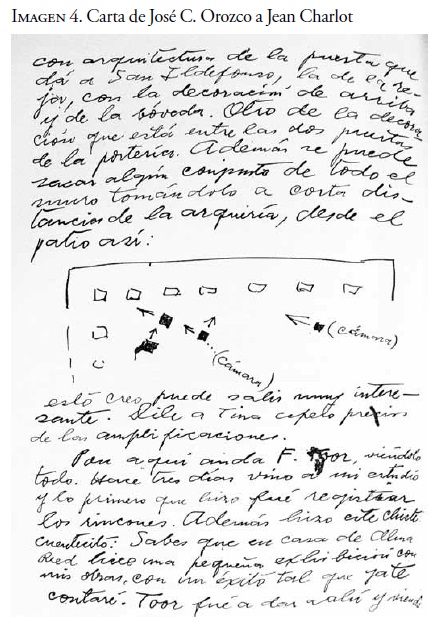 IMAGEN 4. Carta de José C. Orozco a Jean Charlot
con arquitectura de la puerta que
dá a San Ildefonso, la de la re-
ja, con la decoración de arriba
y de la bóveda. Otro de la decora
ción que está entre las dos puertas
de la portería. Además se puede
sacar algún conjunto de todo el
muro tomándolo a corta dis-
tancia de la arquería, desde el
patio así:
(cámara)
(cámara)
esto creo puede salir muy intere-
sante. Dile a Tina precios
de las amplificaciones.
Por aquí anda F. Toor, viéndolo
todo. Hace tres días vino a mi estudio
y lo primero que hizo fué registrar
los rincones. Además hizo este chiste
cuentecito: Sabes que en casa de Alma
Reed hice una pequeña exhibición con
mis obras, con un éxito tal que ya te
contaré. Toor fué a dar allí y viendo